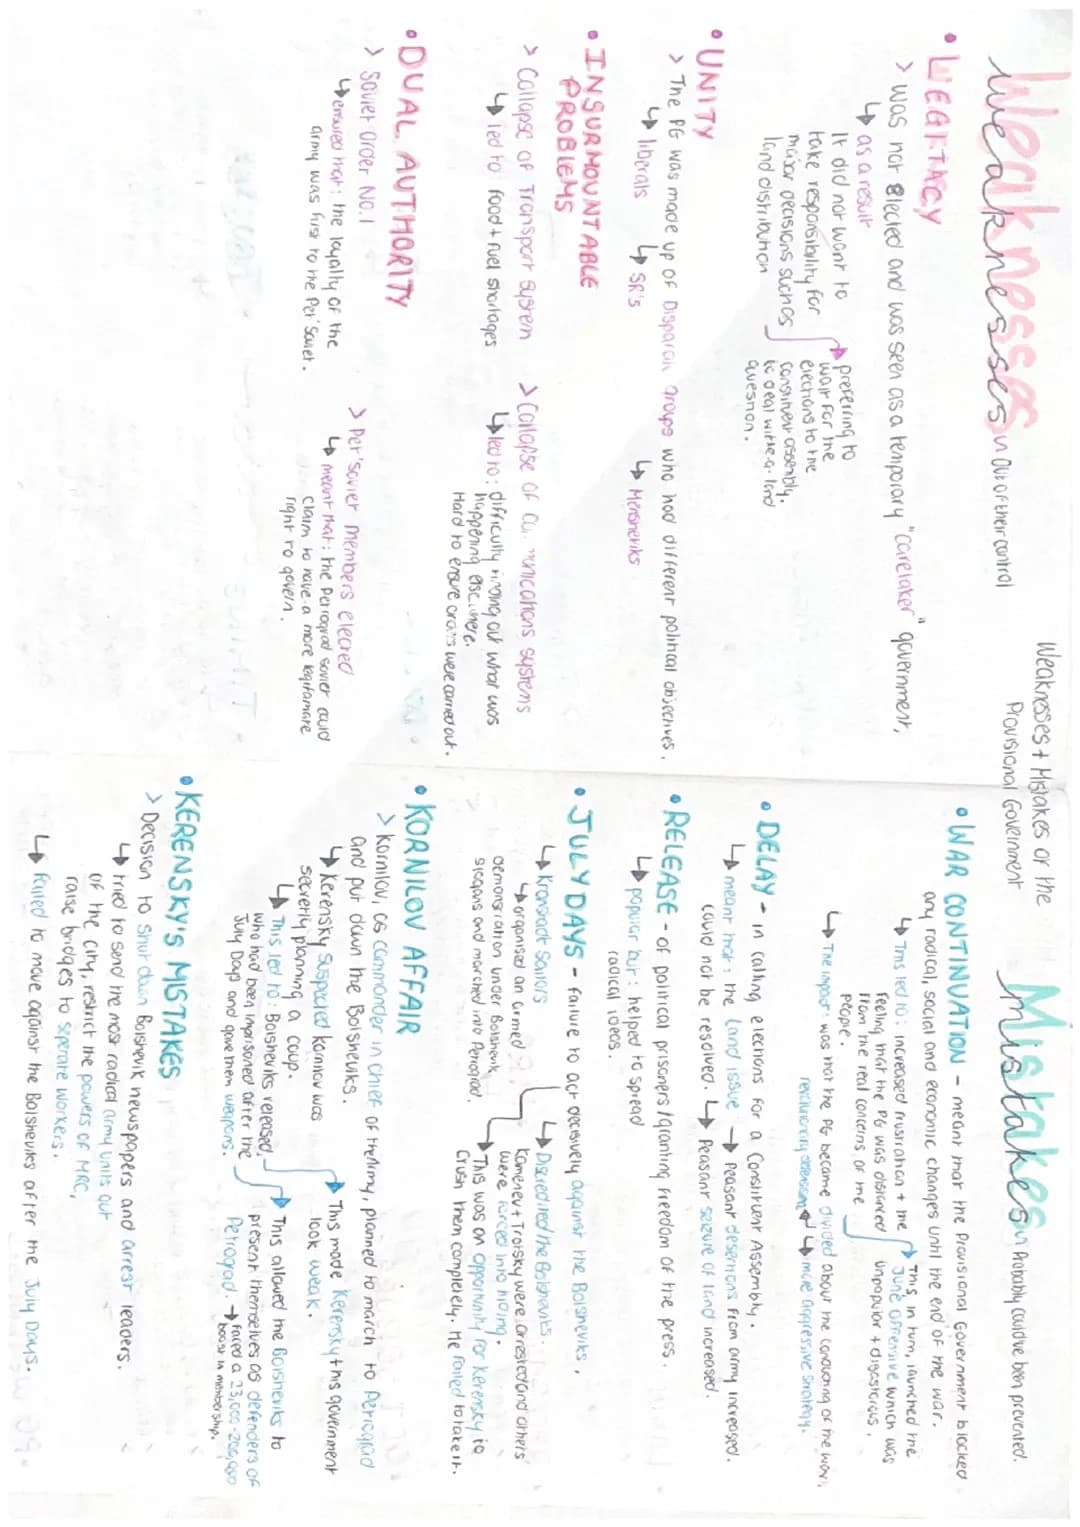 Weaknesses + Mistakes of the
Provisional Government
Weaknesses
Weaknesses
Out of their control
• LEGITACY
> was not elected and was seen as a temporary "caretaker" government,
↳ as a result
It did not want to
take responsibility for
major decisions such as
land distribution
preferring to
wait for the
elections to the
constituent assembly,
to deal with e.g. land
question.
• UNITY
> The PG was made up of Disparate groups who had different political objectives.
↳ liberals ↳ SR's ↳ Mensheviks
• INSURMOUNTABLE
PROBLEMS
> Collapse of Transport system
↳ led to: food + fuel shortages
> Collapse of communications systems
↳ led to: difficulty finding out what was
happening elsewhere.
Hard to ensure orders were carried out.
• DUAL AUTHORITY
> Soviet Order No. 1
↳ ensured that: the loyalty of the
army was first to the Pet' Soviet.
> Pet' soviet members elected
↳ meant that: the Petrograd soviet could
claim to have a more legitamate
right to govern.
Mistakes
Mistakes
Probably could've been prevented.
• WAR CONTINUATION - meant that the Provisional Government blocked
any radical, social and economic changes until the end of the war.
↳ This led to: increased frustration + the
feeling that the PG was distanced
from the real concerns of the
people.
This, in turn, launched the
June offensive which was
unpopular + disastorous.
↳ The impact: was that the PG became divided about the conducting of the war,
revolutionary defensism ↳ more aggressive strategy.
• DELAY - in calling elections for a Constituent Assembly.
↳ meant that: the land issue → Peasant desertions from army increased.
could not be resolved. ↳ Peasant seizure of land increased.
• RELEASE - of political prisoners / granting freedom of the press.
↳ popular but: helped to spread
radical ideas.
• JULY DAYS - failure to act decisively against the Bolsheviks,
↳ Kronstadt Sailors
↳ organised an armed
demonstration under Bolshevik
slogans and marched into Petrograd.
↳ Discredited the Bolsheviks.
Kamenev + Trotsky were arrested and others
were forced into hiding.
↳ This was an opportunity for Kerensky to
crush them completely. He failed to take it.
• KORNILOV AFFAIR
> Kornilov, as commander in chief of the Army, planned to march to Petrograd
and put down the Bolsheviks.
↳ Kerensky suspected Kornilov was
secretly planning a coup.
↳ This led to: Bolsheviks released,
who had been imprisoned after the
July Days and gave them weapons.
This made Kerensky + his government
look weak.
This allowed the Bolsheviks to
present themselves as defenders of
Petrograd. →
boost in membership.
• KERENSKY'S MISTAKES
> Decision to shut down Bolshevik newspapers and arrest leaders.
↳ tried to send the most radical army units out
of the city, restrict the powers of MRC,
raise bridges to sperate workers.
↳ Failed to move against the Bolsheviks after the July Days.